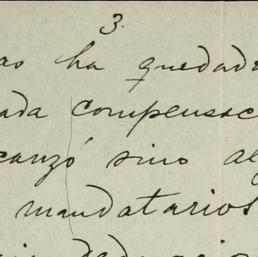 3.
as ha quedad
ada compensac
canzó sino al
mandatarios